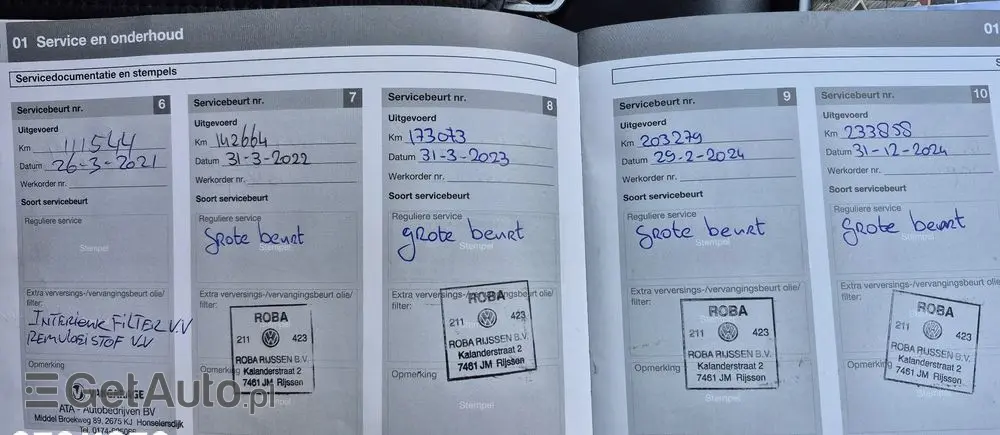 01 Service en onderhoud
01
Servicedocumentatie en stempels
S
Servicebeurt nr. 6
Uitgevoerd
Km 111544
Datum 26-3-2021
Werkorder nr.
Soort servicebeurt
Reguliere service
Stempel
Extra verversings-/vervangingsbeurt olie/
filter:
INTERIEUR FILTER V.V
REMVLOEISTOF V.V
Opmerking
ATA - Autobedrijven BV
Middel Broekweg 89, 2675 KJ Honselersdijk
Servicebeurt nr. 7
Uitgevoerd
Km 142664
Datum 31-3-2022
Werkorder nr.
Soort servicebeurt
Reguliere service
Grote beurt
Stempel
Extra verversings-/vervangingsbeurt olie/
filter:
ROBA
211 423
ROBA RIJSSEN B.V.
Kalanderstraat 2
7461 JM Rijssen
Opmerking
Servicebeurt nr. 8
Uitgevoerd
Km 173073
Datum 31-3-2023
Werkorder nr.
Soort servicebeurt
Reguliere service
grote beurt
Stempel
Extra verversings-/vervangingsbeurt olie/
filter:
ROBA
211 423
ROBA RIJSSEN B.V.
Kalanderstraat 2
7461 JM Rijssen
Opmerking
Stempel
Servicebeurt nr. 9
Uitgevoerd
Km 203279
Datum 29-2-2024
Werkorder nr.
Soort servicebeurt
Reguliere service
Grote beurt
Stempel
Extra verversings-/vervangingsbeurt olie/
filter:
ROBA
211 423
ROBA RIJSSEN B.V.
Kalanderstraat 2
7461 JM Rijssen
Opmerking
Stempel
Servicebeurt nr. 10
Uitgevoerd
Km 233858
Datum 31-12-2024
Werkorder nr.
Soort servicebeurt
Reguliere service
Grote beurt
Stempel
Extra verversings-/vervangingsbeurt olie/
filter:
ROBA
211 423
ROBA RIJSSEN B.V.
Kalanderstraat 2
7461 JM Rijssen
Opmerking
Stempel
GetAuto.pl